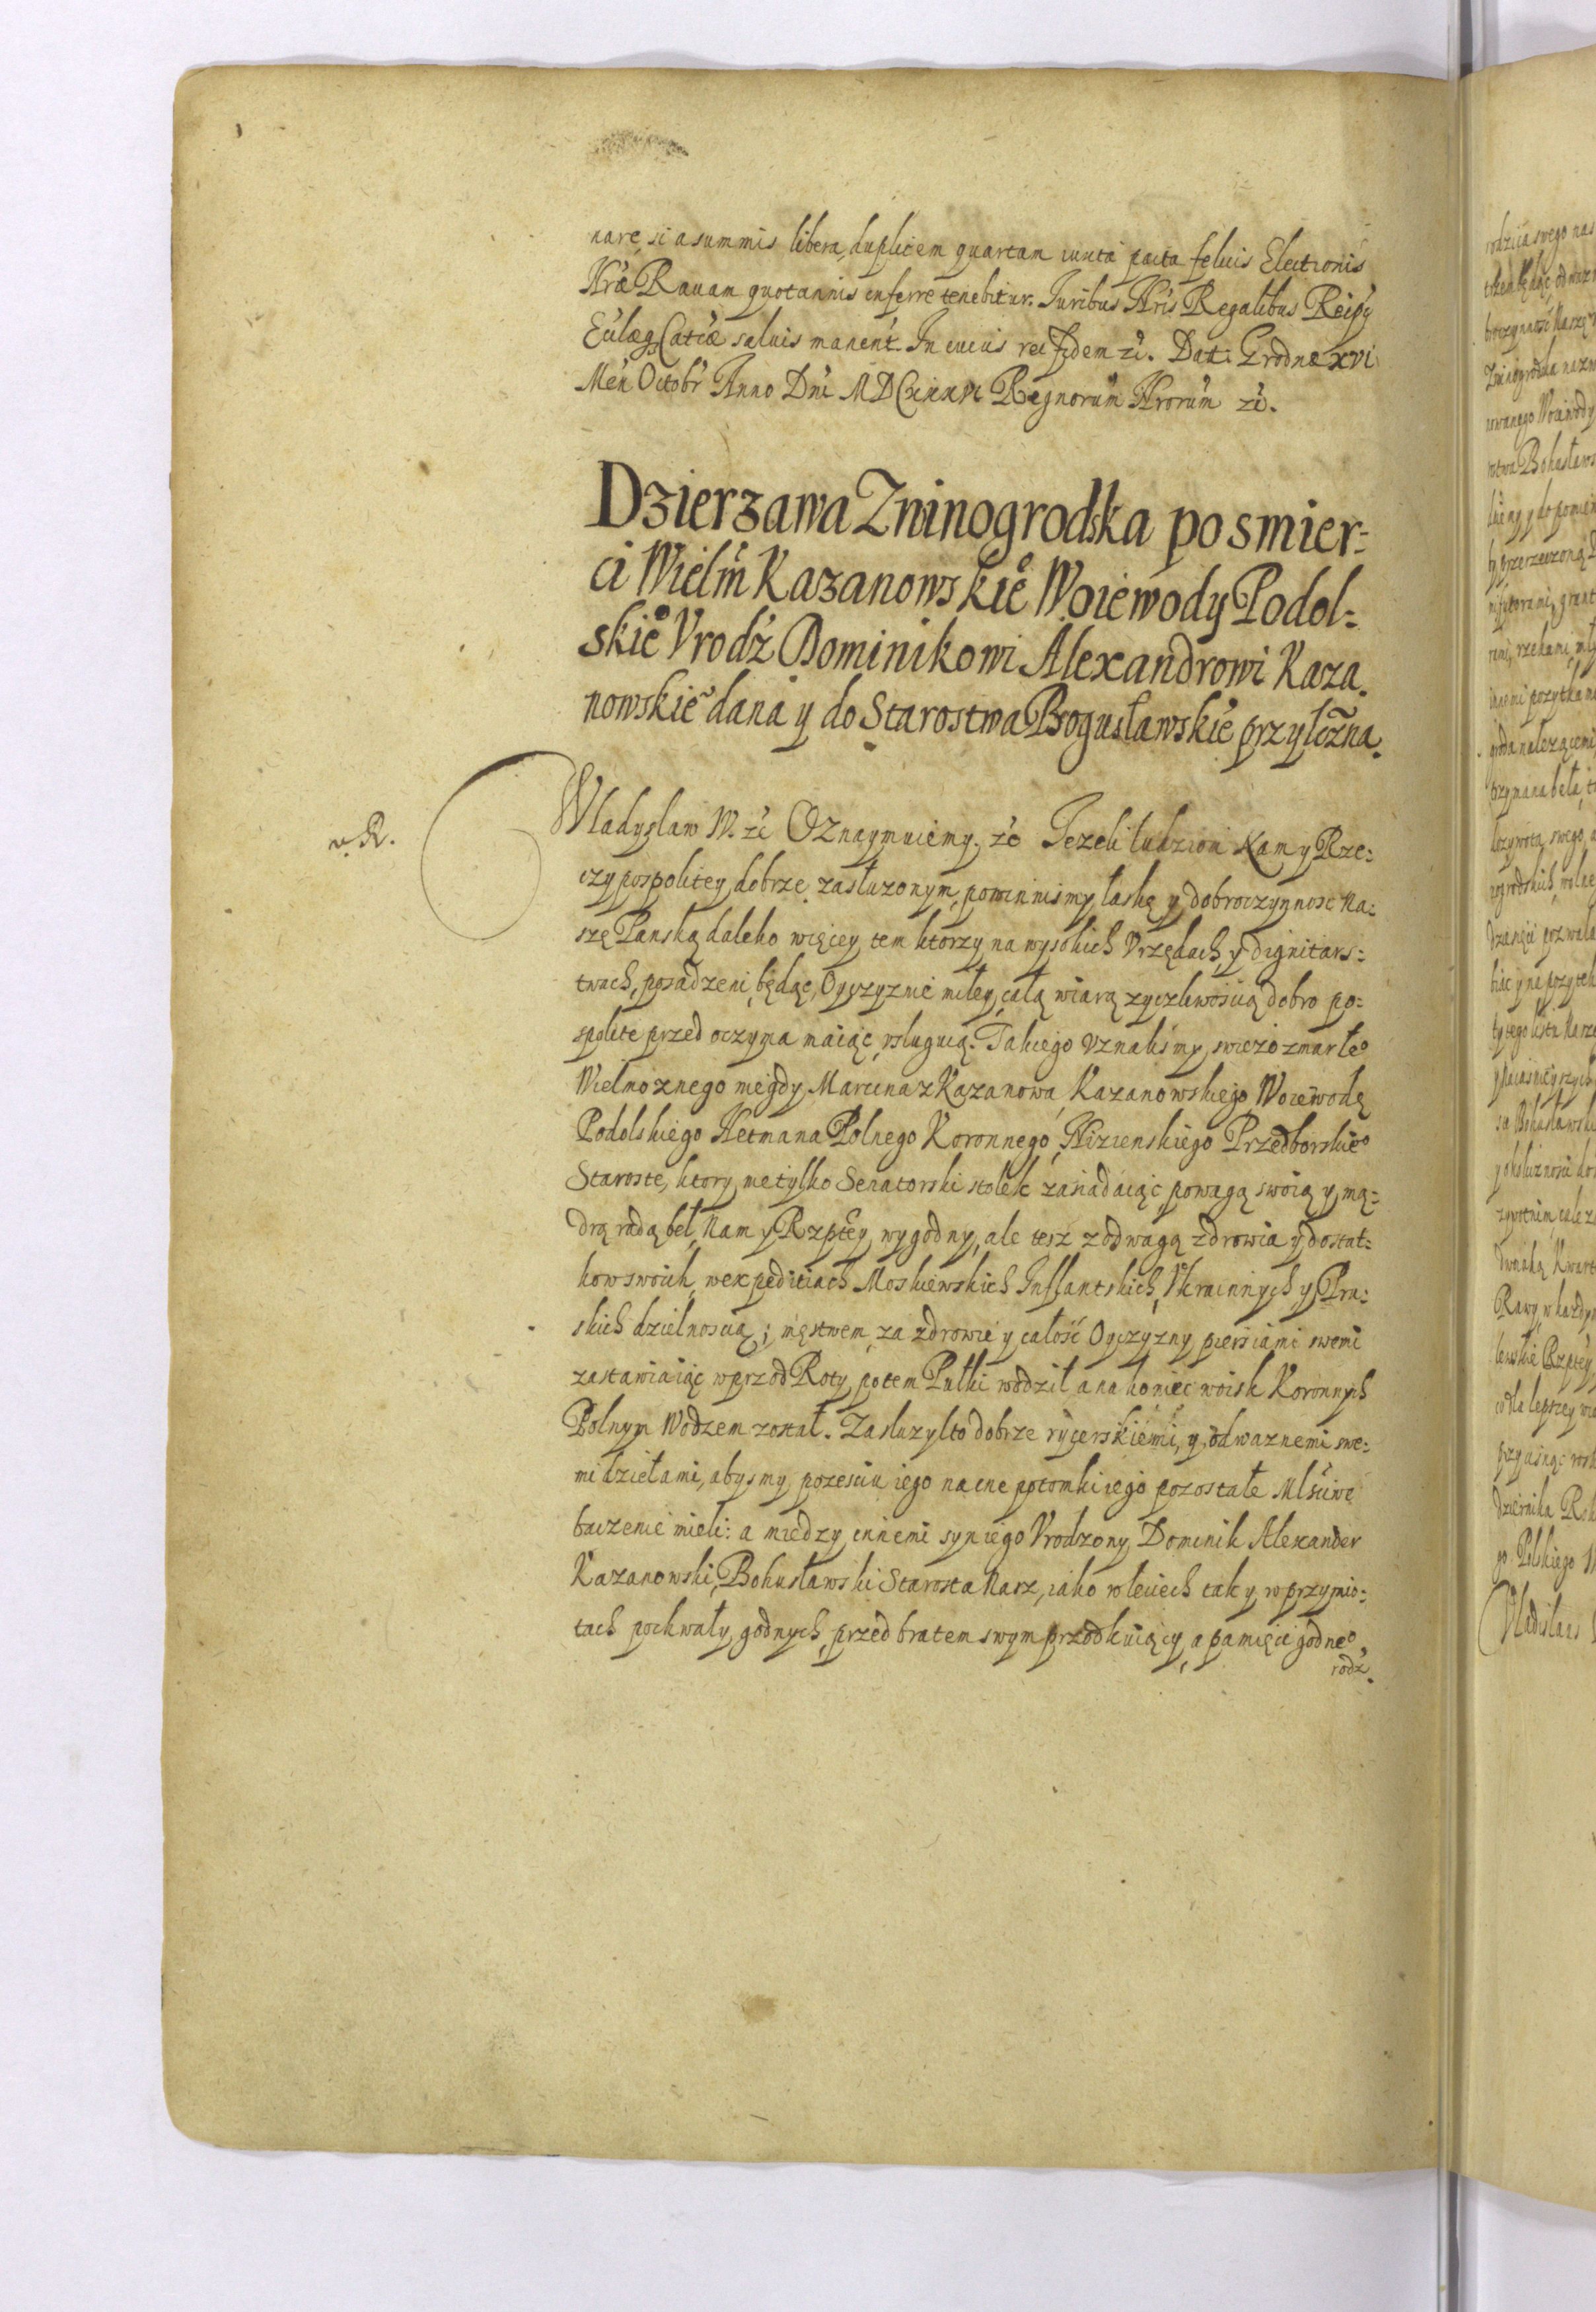 nare, si a summis libera, duplicem quartam iuxta pacta felicis Electionis
Nrae Rauam quotannis inferre tenebitur. Iuribus Nris Regalibus Reipu
Eulaeq Catiae saluis manent. In cuius rei fidem zc. Dat. Grodnae XVI
Men Octobr Anno Dni MDCXXXVI Regnorum Nrorum zc.
Dzierzawa Zwinogrodska po smier:
ci Wielm Kazanowskie Woiewody Podol:
skieo Vrodz Dominikowi Alexandrowi Kaza
nowskie dana y do Starostwa Bogusławskie przyłczna.
v. R.
Władysław IV. zc Oznaymuiemy. ze Iezeli ludziom Nam y Rze:
czypospolitey dobrze zasłuzonym, powinnismy łaskę y dobroczynnosc Na:
szę Panską daleko więcey tem ktorzy na wysokich Vrzędach, y dignitars:
twach, posadzeni będąc, Oyczyznie miłey, całą wiarą zyczliwoscią dobro po:
spolite przed oczyma maiąc, vsługuią. Takiego vznalismy swiezo zmarłeo
Wielmoznego niegdy Marcina z Kazanowa Kazanowskiego Woiewodę
Podolskiego Hetmana Polnego Koronnego, Nizienskiego Przedborskieo
Staroste, ktory nietylko Senatorski stolek zasiadaiąc, powagą swoią y mą:
drą radą beł Nam y Rzptey wygodny, ale tesz z odwagą zdrowia y dostat:
kow swoich, w expeditiach Moskiewskich Inflantskich, Vkrainnych y Pru:
skich dzielnoscią; męstwem, za zdrowie y całość Oyczyzny piersiami swemi
zastawiaiąc wprzod Roty, potem Pułki wodził a na koniec woisk Koronnych
Polnym Wodzem został. Zasłuzyl to dobrze rycerskiemi, y odwaznemi swe:
mi dziełami, abysmy po zesciu iego na cne potomki iego pozostałe Młściwe
baczenie mieli: a miedzy innemi syn iego Vrodzony Dominik Alexander
Kazanowski, Bohusławski Starosta Nasz, iako w leciech tak y w przymio:
tach pochwały godnych, przed bratem swym przodkuiący, a pamięci godneo
rodz.